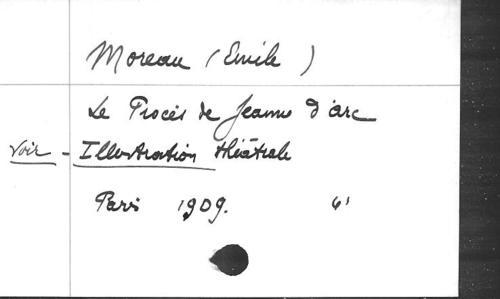 Moreau (Emile)
Le Procès de Jeanne d'arc
Voir - Illustration théâtrale
Paris 1909. 4¹